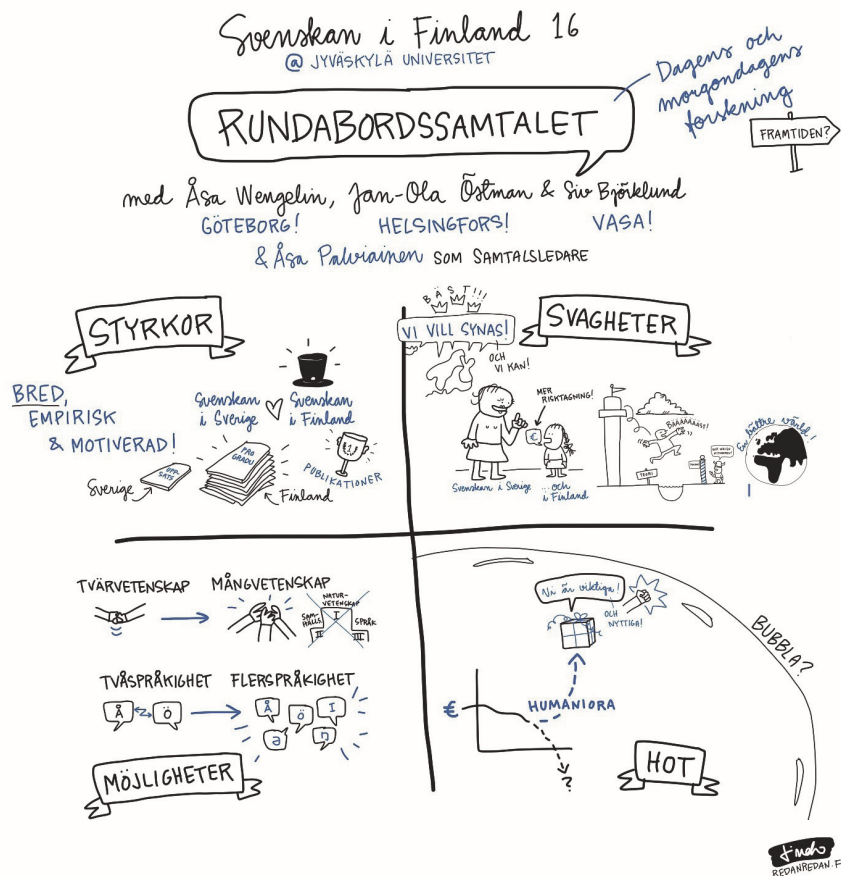 Svenskan i Finland 16
@ JYVÄSKYLÄ UNIVERSITET
RUNDABORDSSAMTALET
Dagens och
morgondagens
forskning
FRAMTIDEN?
med Åsa Wengelin, Jan-Ola Östman & Siv Björklund
GÖTEBORG! HELSINGFORS! VASA!
& Åsa Palviainen SOM SAMTALSLEDARE
STYRKOR
BRED,
EMPIRISK
& MOTIVERAD!
Svenskan
i Sverige
Svenskan
i Finland
UPP
SATS
PRO
GRADU
PUBLIKATIONER
Sverige
Finland
BÄST!!!
VI VILL SYNAS!
OCH
VI KAN!
SVAGHETER
MER
RISKTAGNING!
€
Svenskan i Sverige
...och
i Finland
BÄÄÄÄÄÄÄST!
TEORI
En bättre värld!
TVÄRVETENSKAP
MÅNGVETENSKAP
NATUR-
VETENSKAP
SAM-
HÄLLS
I
II
III
SPRÅK
TVÅSPRÅKIGHET
FLERSPRÅKIGHET
Å Ö
Å Ö I
Ə Ŋ
MÖJLIGHETER
Vi är viktiga!
OCH
NYTTIGA!
BUBBLA?
€
HUMANIORA
?
HOT
REDANREDAN.F